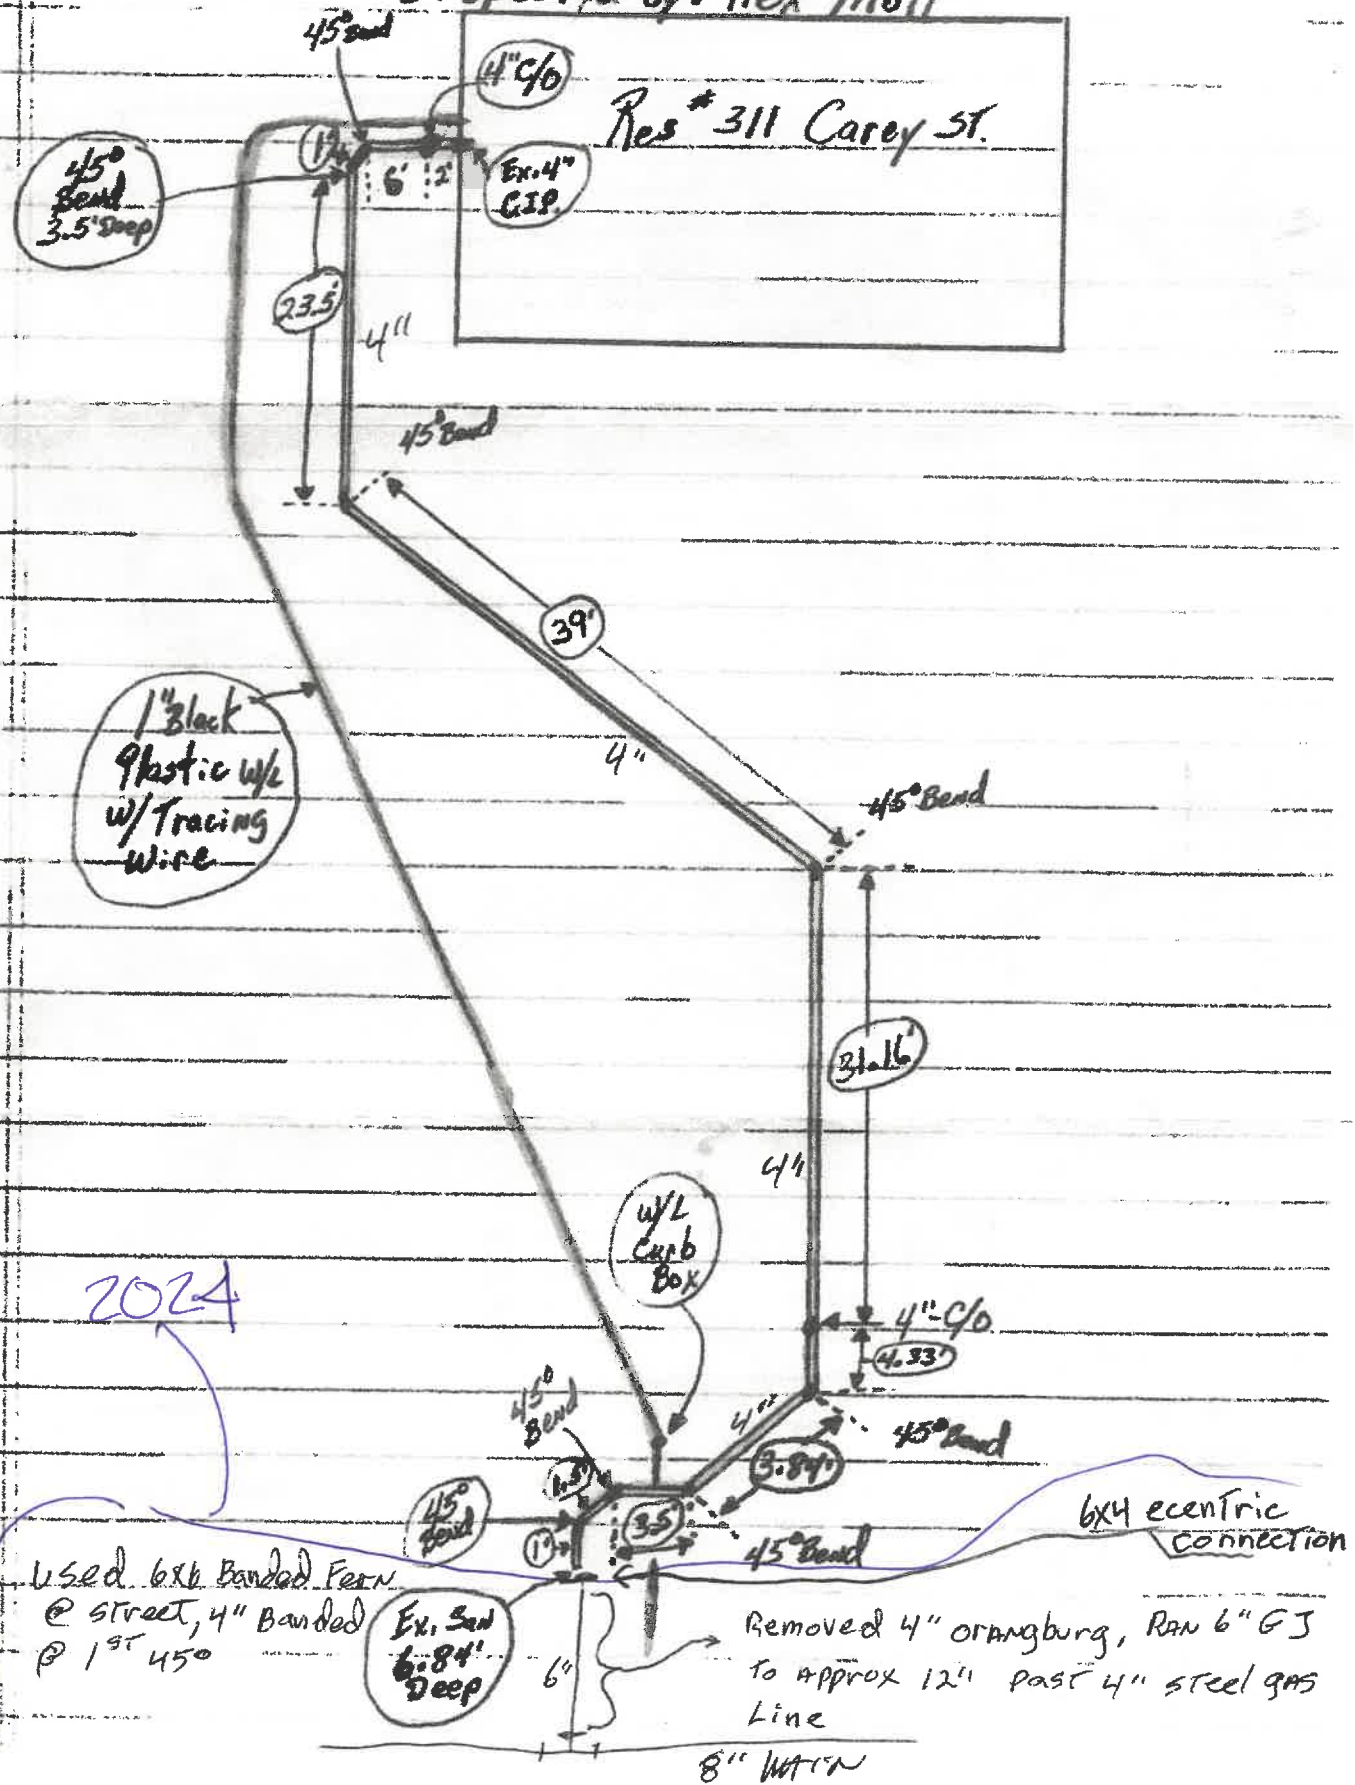 45° Bend
4" C/O
Res # 311 Carey ST.
45°
Bend
3.5' Deep
6'
2'
Ex. 4"
C.I.P.
23.5'
4"
45° Bend
39'
1" Black
Plastic W/L
W/ Tracing
Wire
4"
45° Bend
31.16'
4"
W/L
Curb
Box
2024
4"-C/O
4.33'
45°
Bend
4"
45° Bend
3.84'
1.5'
45°
Bend
3.5'
1'
45° Bend
6x4 ecentric
connection
Used 6x6 Banded Fern
@ street, 4" Banded
@ 1ST 45°
Ex. San
6.84'
Deep
6"
Removed 4" orangburg, Ran 6" GJ
To Approx 12" past 4" steel gas
Line
8" MAIN